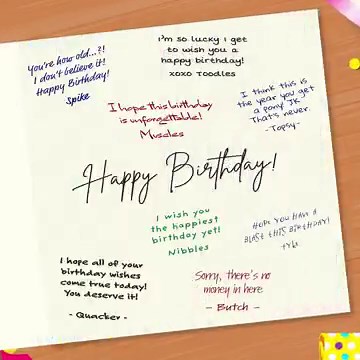 You're how old...?!
I don't believe it!
Happy Birthday!
Spike
I'm so lucky I get
to wish you a
happy birthday!
xoxo Toodles
I think this is
the year you get
a pony JK
That's never.
-Topsy-
I hope this birthday
is unforgettable!
Muscles
Happy Birthday!
I wish you
the happiest
birthday yet!
Nibbles
Hope you have a
blast this birthday!
I hope all of your
birthday wishes
come true today!
You deserve it!
- Quacker -
Sorry, there's no
money in here
- Butch -